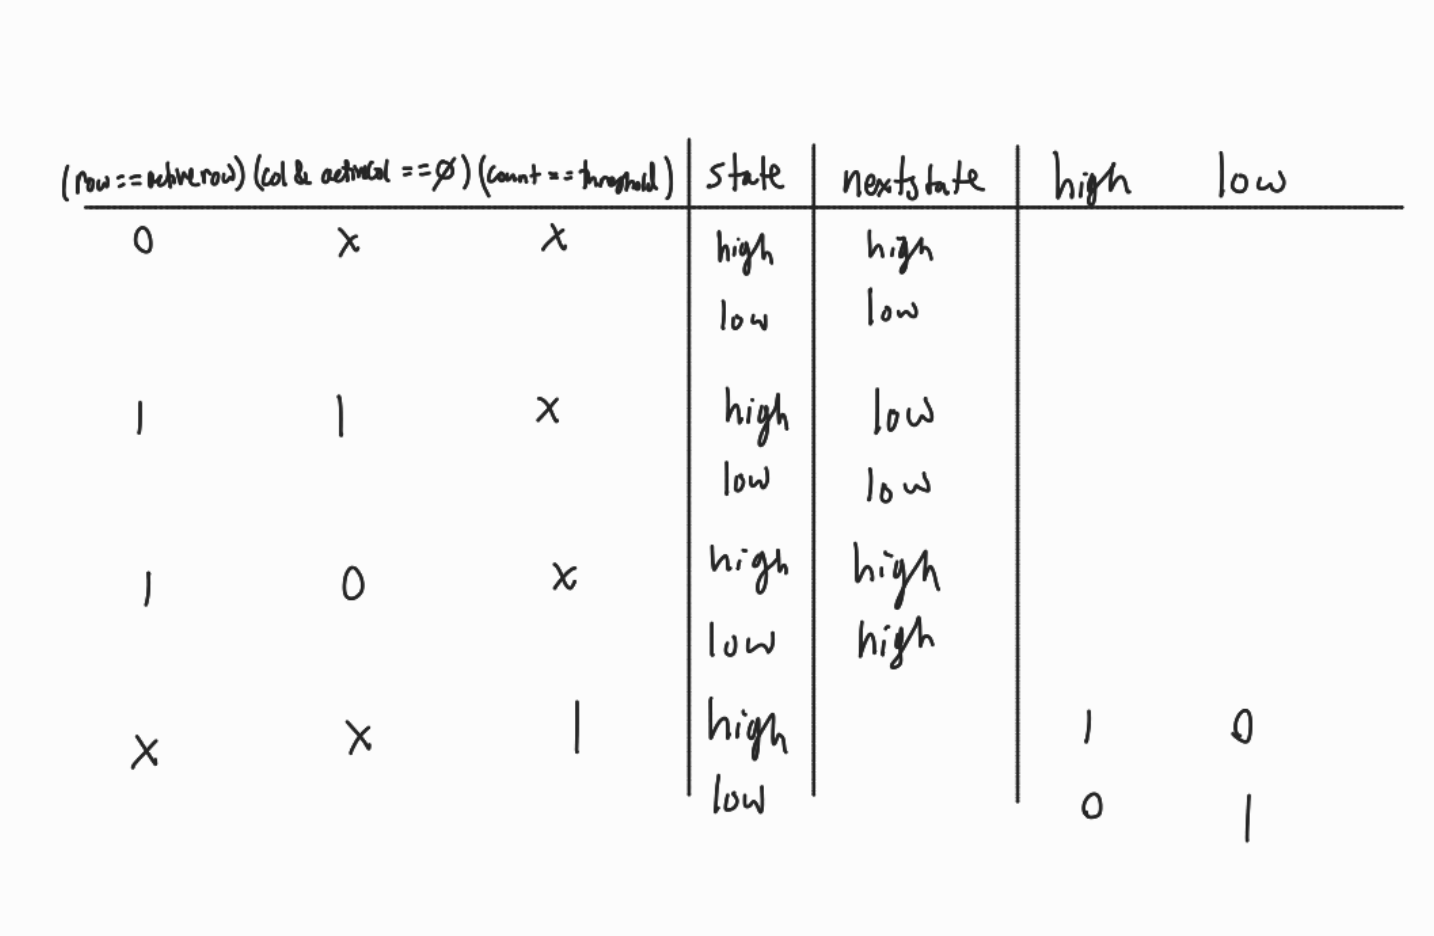 (row==activerow) (col & activecol ==0) (count == threshold) state nextstate high low
0 x x high high
low low
1 1 x high low
low low
1 0 x high high
low high
x x 1 high 1 0
low 0 1